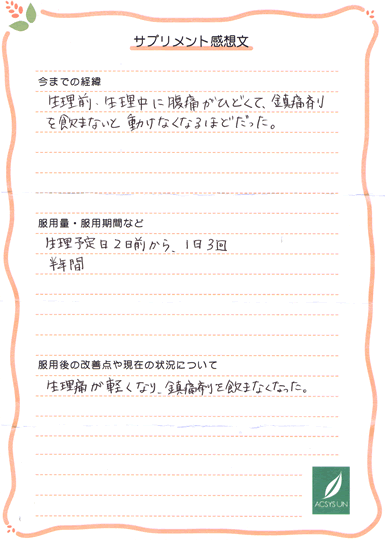 サプリメント感想文
今までの経緯
生理前、生理中に腹痛がひどくて、鎮痛剤
を飲まないと動けなくなるほどだった。
服用量・服用期間など
生理予定日2日前から、1日3回
半年間
服用後の改善点や現在の状況について
生理痛が軽くなり、鎮痛剤を飲まなくなった。
ACSYSUN